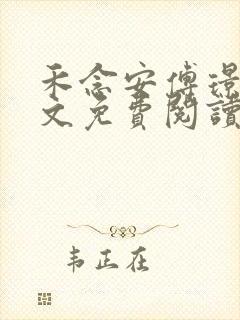 禾念安傅璟
文免費閱讀
韦正在